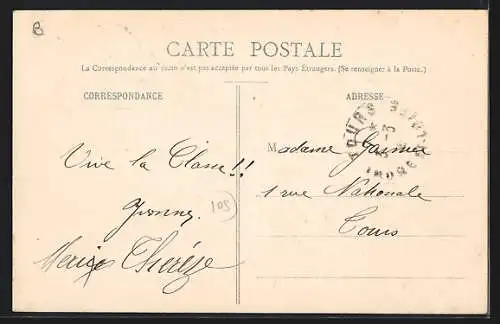 B
CARTE POSTALE
La Correspondance au recto n'est pas acceptée par tous les Pays Étrangers. (Se renseigner à la Poste.)
CORRESPONDANCE
ADRESSE
TOURS
INDRE
Vive la Classe!!
Yvonne
Marie Thérèze
105
Madame Garnier
1 rue Nationale
Tours